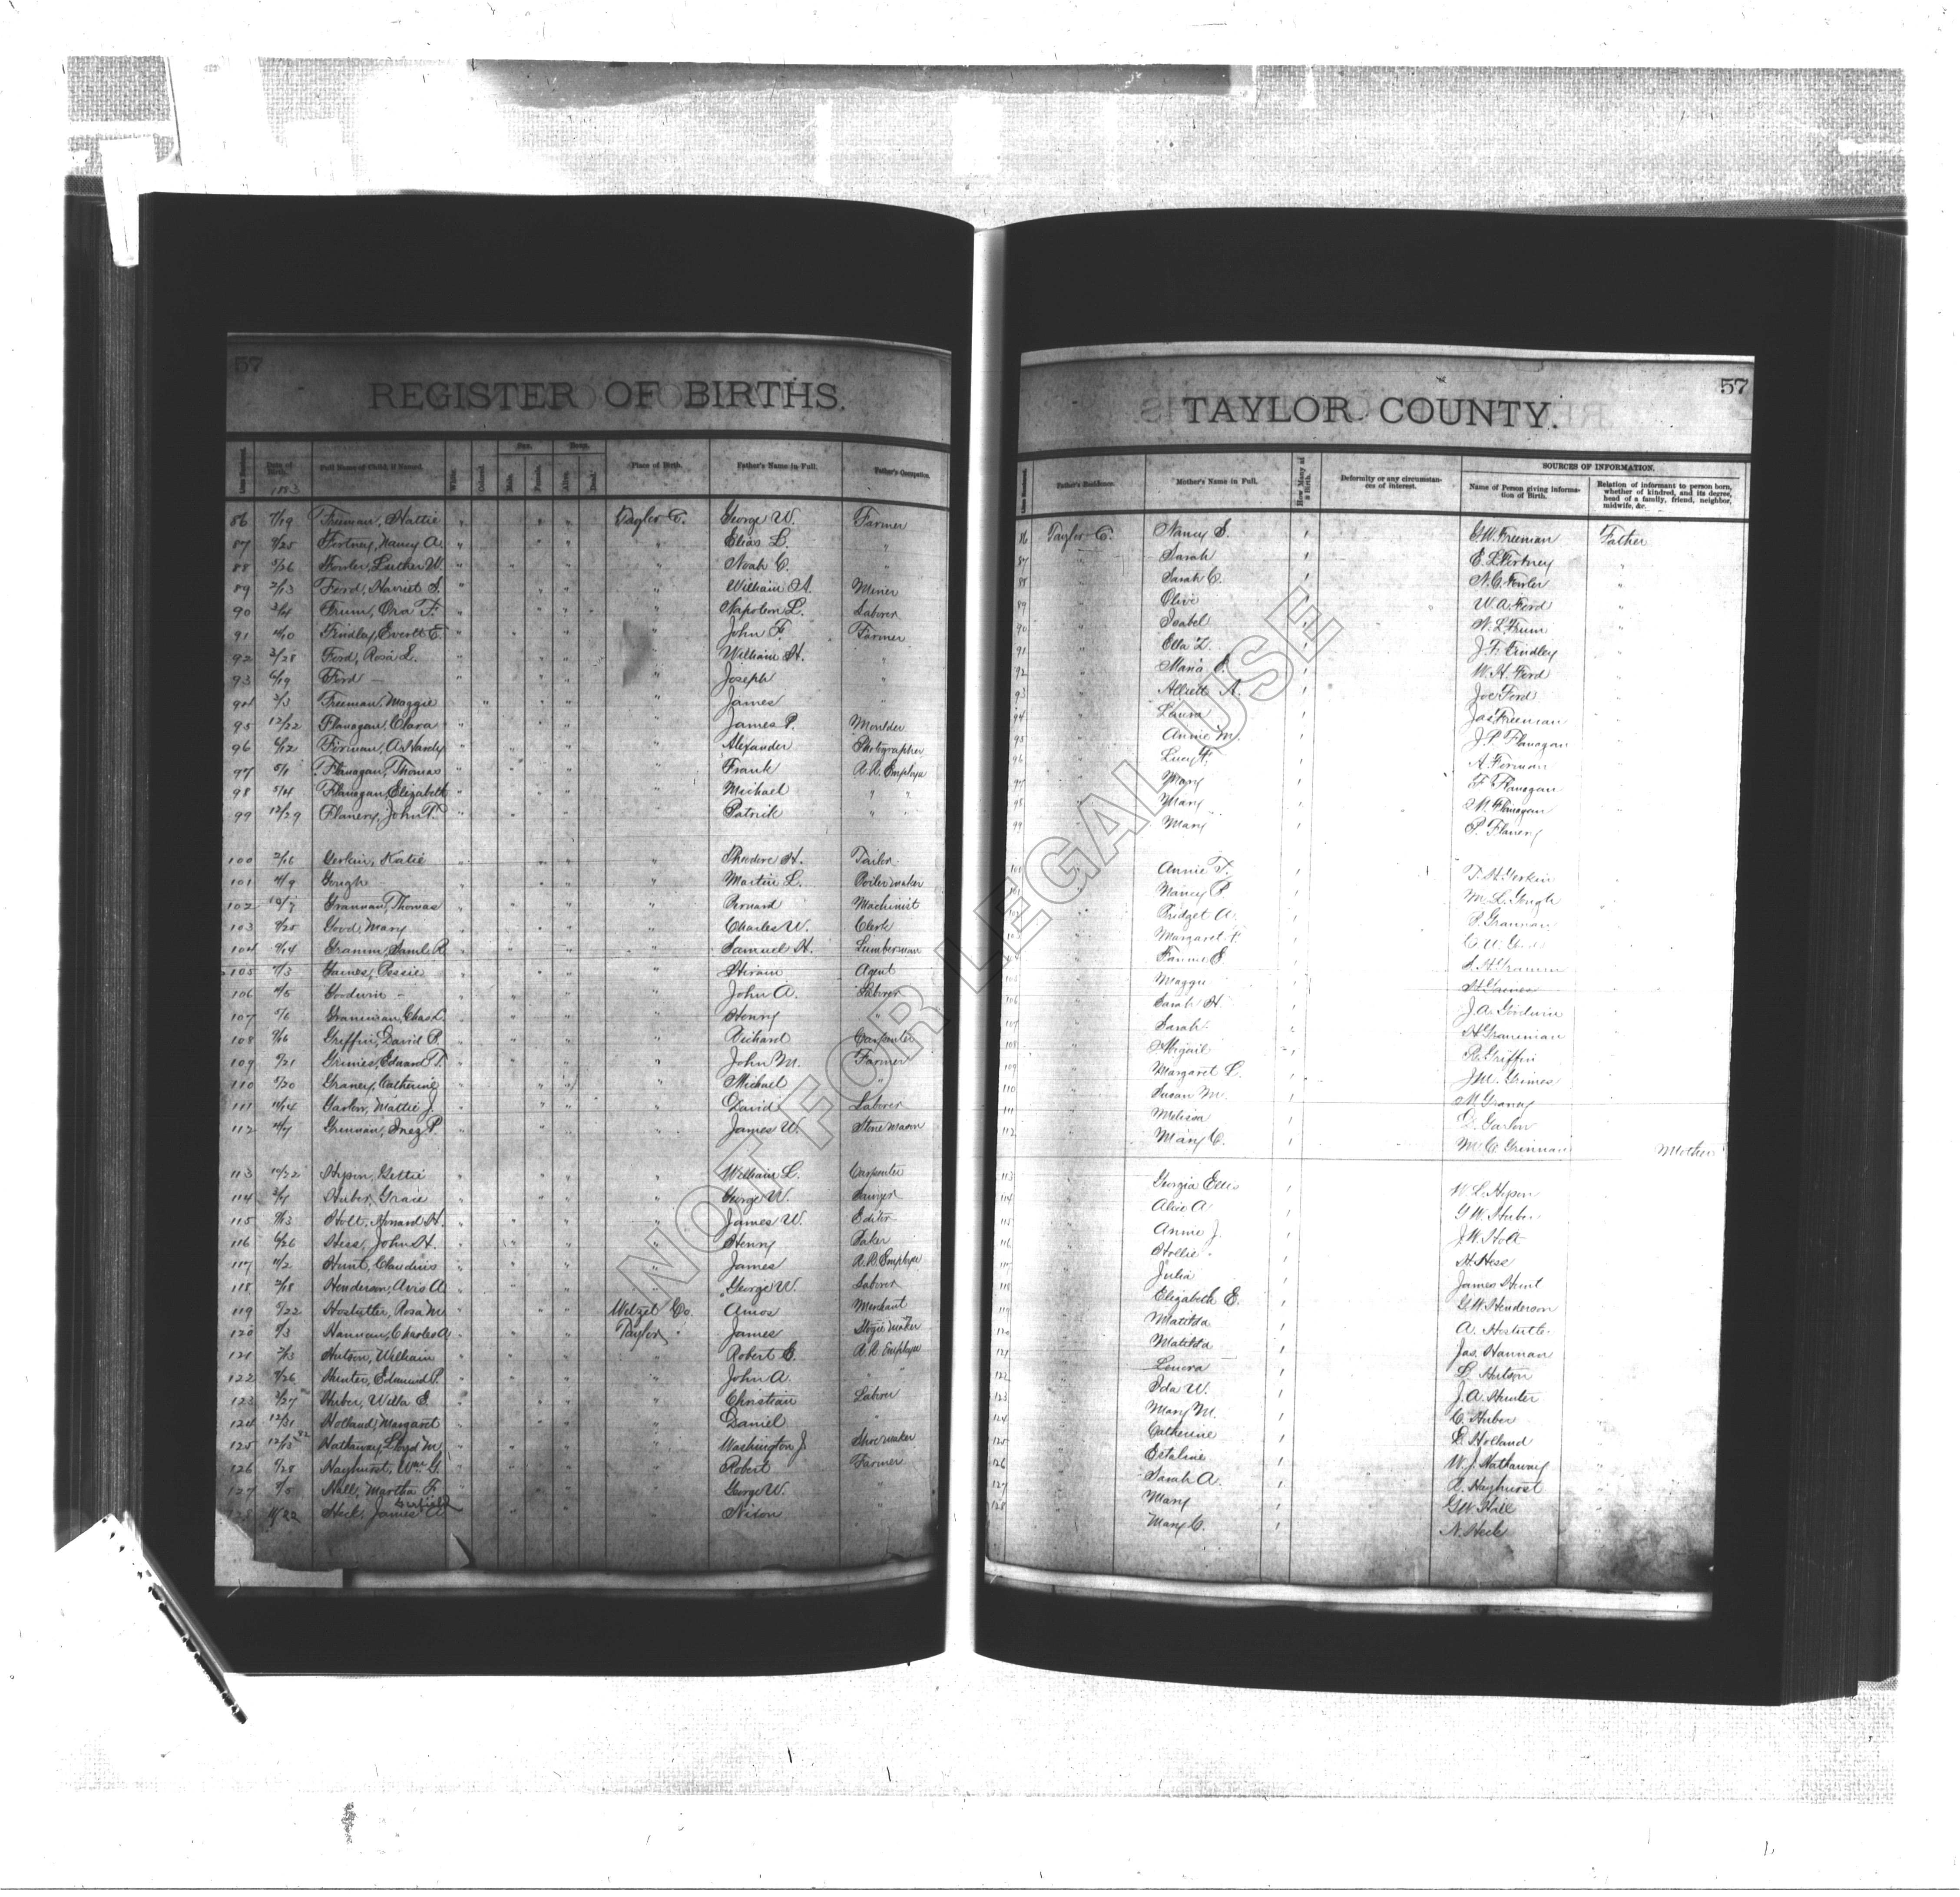 57
REGISTER OF BIRTHS.
Date of Birth. Full Name of Child, if Named. White. Colored. Sex. Male. Female. Born. Alive. Dead. Place of Birth. Father's Name in Full. Father's Occupation
1883
86 7/19 Freeman, Hattie " " " Taylor C. George W. Farmer
87 9/25 Fortney, Nancy A. " " " " Elias L. "
88 5/26 Fowler, Luther W. " " " " Noah C. "
89 2/13 Ford, Harriet S. " " " " William A. Miner
90 3/4 Frum, Ora F. " " " " Napoleon L. Laborer
91 Findley, Everett E. " " " " John F. Farmer
92 3/28 Ford, Rosa L. " " " " William H. "
93 6/19 Ford — " " " " Joseph "
94 3/3 Freeman, Maggie " " " " James "
95 12/22 Flanagan, Clara " " " " James P. Moulder
96 6/12 Forman, A. Hardy " " " " Alexander Photographer
97 5/1 Flanagan, Thomas " " " " Frank R.R. Employe
98 5/4 Flanagan, Elizabeth " " " " Michael " "
99 12/29 Flanery, John T. " " " " Patrick " "
100 2/16 Gerkin, Katie " " " " Theodore H. Tailor
101 4/9 Gough — " " " " Martin L. Boiler maker
102 10/7 Grannan, Thomas " " " " Bernard Machinist
103 9/25 Good, Mary " " " " Charles W. Clerk
104 9/14 Gramm, Saml. R. " " " " Samuel H. Lumberman
105 Gaines, Bessie " " " " Hiram Agent
106 4/5 Goodwin — " " " " John A. Laborer
107 5/6 Graneman, Chas. L. " " " " Henry "
108 9/16 Griffin, David P. " " " " Richard Carpenter
109 Grimes, Edward T. " " " " John M. Farmer
110 Graney, Catherine " " " " Michael "
111 Garlow, Mattie J. " " " " David Laborer
112 4/7 Grennan, Inez P. " " " " James W. Stone Mason
113 10/22 Hypon, Gettie " " " " William L. Carpenter
114 3/4 Huber, Grace " " " " George W. Sawyer
115 9/13 Holt, H. " " " " James W. Editor
116 6/26 Hess, John H. " " " " Henry Baker
117 11/2 Hunt, Claudius " " " " James R.R. Employe
118 2/18 Henderson, Avis A. " " " " George W. Laborer
119 5/22 Hostutter, Rosa M. " " " Wetzel Co. Amos Merchant
120 Hannan, Charles A. " " " Taylor James Stogie Maker
121 2/13 Hutson, William " " " " Robert E. R.R. Employe
122 Hunter, Edmund P. " " " " John A. "
123 2/27 Huber, Willa E. " " " " Christian Laborer
124 12/31 Holland, Margaret " " " " Daniel "
125 12/13 82 Hathaway, Lloyd M. " " " " Washington J. Shoemaker
126 Hayhurst, Wm. G. " " " " Robert Farmer
127 Hall, Martha F. " " " " George W. "
128 11/22 Heck, James Garfield " " " " Nixon "
57
TAYLOR COUNTY.
Father's Residence. Mother's Name in Full. How Many at a Birth. Deformity or any circumstances of interest. SOURCES OF INFORMATION. Name of Person giving information of Birth. Relation of informant to person born, whether of kindred, and its degree, head of a family, friend, neighbor, midwife, &c.
86 Taylor C. Nancy S. 1 G.W. Freeman Father
87 " Sarah 1 E.L. Fortney "
88 " Sarah C. 1 N.C. Fowler "
89 " Olive 1 W.A. Ford "
90 " Isabel 1 N.L. Frum "
91 " Ella Z. 1 J.F. Findley "
92 " Maria E. 1 W.H. Ford "
93 " A. 1 Joe Ford "
94 " Laura 1 Jas. Freeman "
95 " Annie M. 1 J.P. Flanagan "
96 " Lucy F. 1 A. Forman "
97 " Mary 1 F. Flanagan "
98 " Mary 1 M. Flanagan "
99 " Mary 1 P. Flanery "
Annie F. 1 T.H. Gerkin "
101 Nancy P. 1 M.L. Gough "
102 Bridget A. 1 B. Grannan "
Margaret 1 C.W. Good "
Fannie E. 1 S.H. Gramm "
105 Maggie 1 H. Gaines "
106 Sarah H. 1 J.A. Goodwin "
107 Sarah " H. Graneman "
108 Abigail 1 R. Griffin "
109 Margaret C. 1 J.M. Grimes "
110 Susan M. 1 M. Graney "
111 Melissa 1 D. Garlow "
112 Mary C. 1 M.C. Grennan Mother
113 Georgia Ellis 1 W.L. Hypon
114 Alice A 1 G.W. Huber
115 Annie J. 1 J.W. Holt
116 Hollie 1 H. Hess
117 Julia 1 James Hunt
118 Elizabeth E. 1 G.W. Henderson
119 Matilda 1 A. Hostutter
120 Matilda 1 Jas. Hannan
121 Lenora 1 Hutson
122 Ida W. 1 J.A. Hunter
123 Mary M. 1 C. Huber
124 Catherine 1 D. Holland
125 Estaline 1 W.J. Hathaway
126 Sarah A. 1 R. Hayhurst
127 Mary 1 G.W. Hall
128 Mary C. 1 N. Heck
NOT FOR LEGAL USE